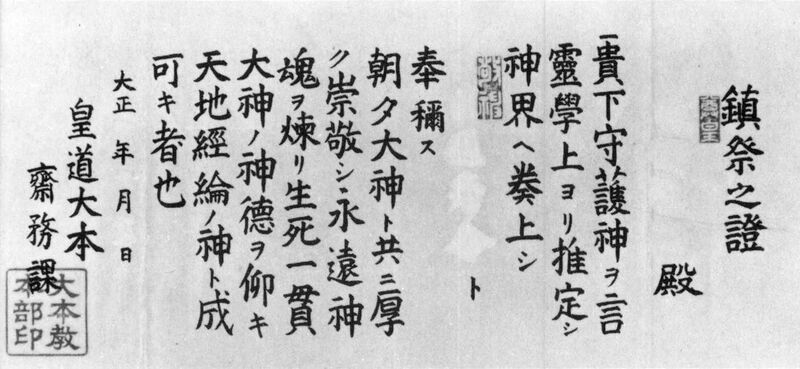 鎮祭之證
殿
一貴下守護神ヲ言
靈學上ヨリ推定シ
神界ヘ奏上シ
ト
奉稱ス
朝夕大神ト共ニ厚
ク崇敬シ永遠神
魂ヲ煉リ生死一貫
大神ノ神德ヲ仰キ
天地經綸ノ神ト成
可キ者也
大正 年 月 日
皇道大本
齋務課
大本教
本部印